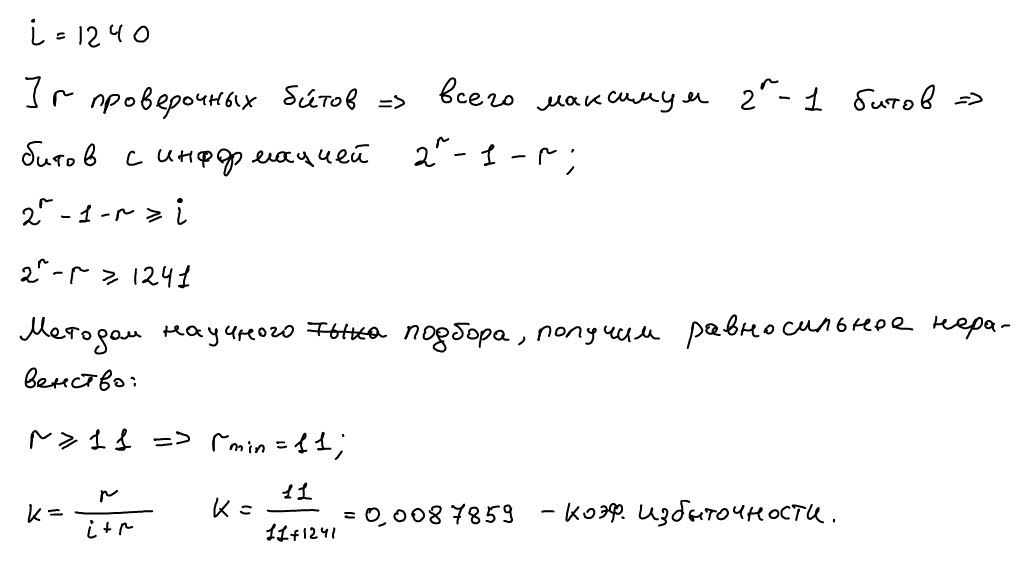 i = 1240
] r проверочных битов => всего максимум 2^r - 1 битов =>
битов с информацией 2^r - 1 - r ;
2^r - 1 - r ⩾ i
2^r - r ⩾ 1241
Методом научного тыка подбора, получим равносильное нера-
венство:
r ⩾ 11 => r_min = 11;
k = r/(i+r) k = 11/(11+1241) = 0,0087859 - коэф. избыточности.